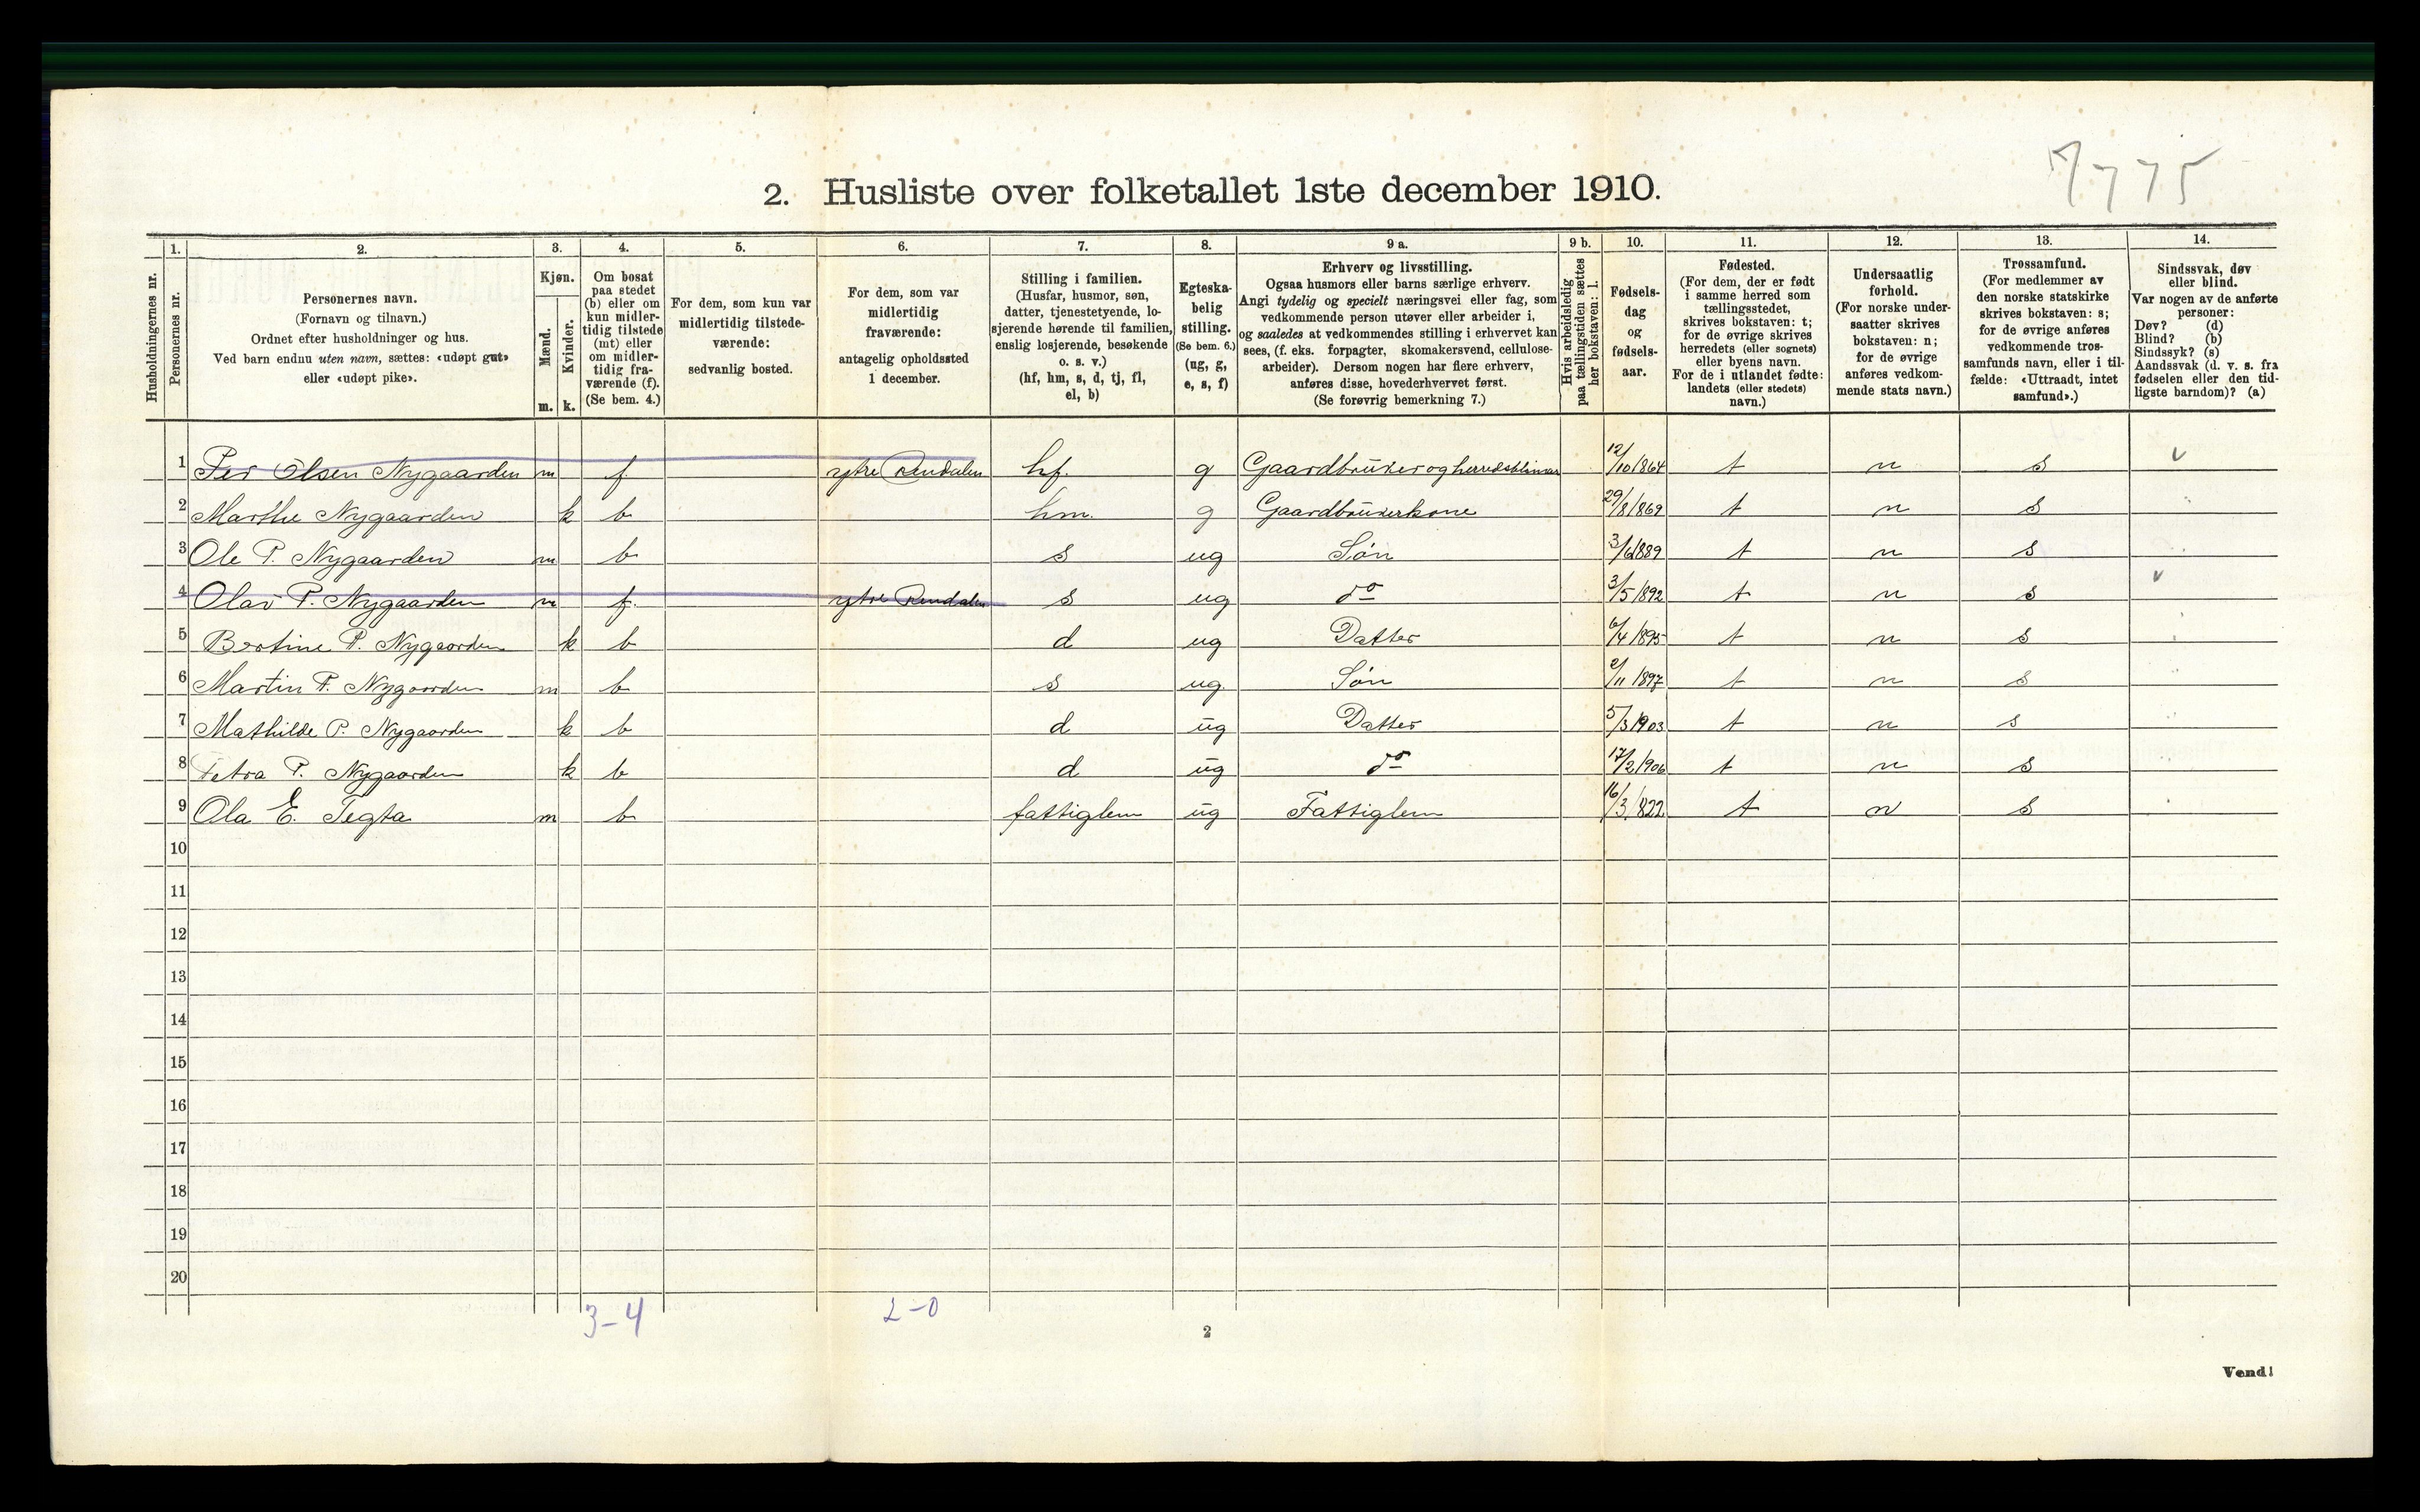 7775
2. Husliste over folketallet 1ste december 1910.
Husholdningernes nr.
1. Personernes nr.
2. Personernes navn. (Fornavn og tilnavn.) Ordnet efter husholdninger og hus. Ved barn endnu uten navn, sættes: «udøpt gut» eller «udøpt pike».
3. Kjøn. Mænd. m. Kvinder. k.
4. Om bosat paa stedet (b) eller om kun midlertidig tilstede (mt) eller om midlertidig fraværende (f). (Se bem. 4.)
5. For dem, som kun var midlertidig tilstedeværende: sedvanlig bosted.
6. For dem, som var midlertidig fraværende: antagelig opholdssted 1 december.
7. Stilling i familien. (Husfar, husmor, søn, datter, tjenestetyende, losjerende hørende til familien, enslig losjerende, besøkende o. s. v.) (hf, hm, s, d, tj, fl, el, b)
8. Egteskabelig stilling. (Se bem. 6.) (ug, g, e, s, f)
9 a. Erhverv og livsstilling. Ogsaa husmors eller barns særlige erhverv. Angi tydelig og specielt næringsvei eller fag, som vedkommende person utøver eller arbeider i, og saaledes at vedkommendes stilling i erhvervet kan sees, (f. eks. forpagter, skomakersvend, cellulosearbeider). Dersom nogen har flere erhverv, anføres disse, hovederhvervet først. (Se forøvrig bemerkning 7.)
9 b. Hvis arbeidsledig paa tællingstiden sættes her bokstaven: l.
10. Fødselsdag og fødselsaar.
11. Fødested. (For dem, der er født i samme herred som tællingsstedet, skrives bokstaven: t; for de øvrige skrives herredets (eller sognets) eller byens navn. For de i utlandet fødte: landets (eller stedets) navn.)
12. Undersaatlig forhold. (For norske undersaatter skrives bokstaven: n; for de øvrige anføres vedkommende stats navn.)
13. Trossamfund. (For medlemmer av den norske statskirke skrives bokstaven: s; for de øvrige anføres vedkommende trossamfunds navn, eller i tilfælde: «Uttraadt, intet samfund».)
14. Sindssvak, døv eller blind. Var nogen av de anførte personer: Døv? (d) Blind? (b) Sindssyk? (s) Aandssvak (d. v. s. fra fødselen eller den tidligste barndom)? (a)
1 Per Olsen Nygaarden m f ytre Rendalen hf. g Gaardbruker og 12/10 1864 t n s v
2 Marthe Nygaarden k b hm. g Gaardbrukerkone 29/8 1869 t n s
3 Ole P. Nygaarden m b s ug Søn 3/6 1889 t n s
4 Olav P. Nygaarden m f. ytre Rendalen s ug do 3/5 1892 t n s v
5 Bertine P. Nygaarden k b d ug Datter 6/4 1895 t n s
6 Martin P. Nygaarden m b s ug. Søn 2/11 1897 t n s
7 Mathilde P. Nygaarden k b d ug Datter 5/3 1903 t n s
8 Petra P. Nygaarden k b d ug do 17/2 1906 t n s
9 Ola E. Tegta m b fattiglem ug Fattiglem 16/3 1822 t n s
10
11
12
13
14
15
16
17
18
19
20
3-4 2-0
2
Vend!